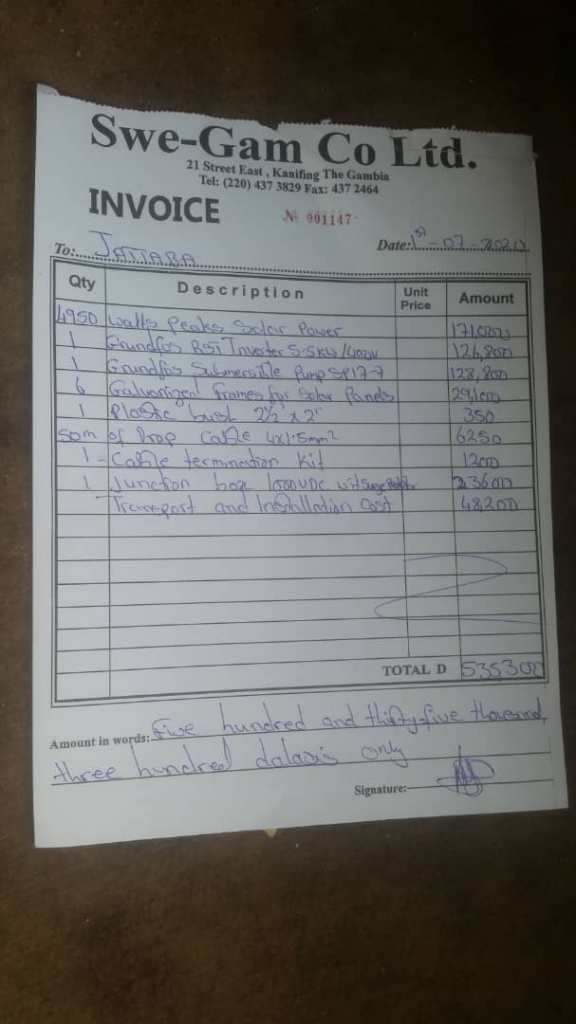 Swe-Gam Co Ltd.
21 Street East , Kanifing The Gambia
Tel: (220) 437 3829 Fax: 437 2464
INVOICE № 001147
To: JATTABA Date: 1st - 07 - 2020
Qty Description Unit Price Amount
4950 Watts Peaks Solar Power 171,000
1 Grundfos RSI Inverter 5.5KW/400V 126,800
1 Grundfos Submersible Pump SP17-7 128,800
6 Galvanized frames for Solar Panels 29,100
1 Plastic bust 2½ x 2" 350
50m of Drop Cable 4x1.5mm² 6250
1 - Cable termination Kit 1200
1 Junction box 1000VDC 23600
Transport and Installation Cost 48200
TOTAL D 535300
Amount in words: Five hundred and thirty-five thousand,
three hundred dalasis only
Signature: